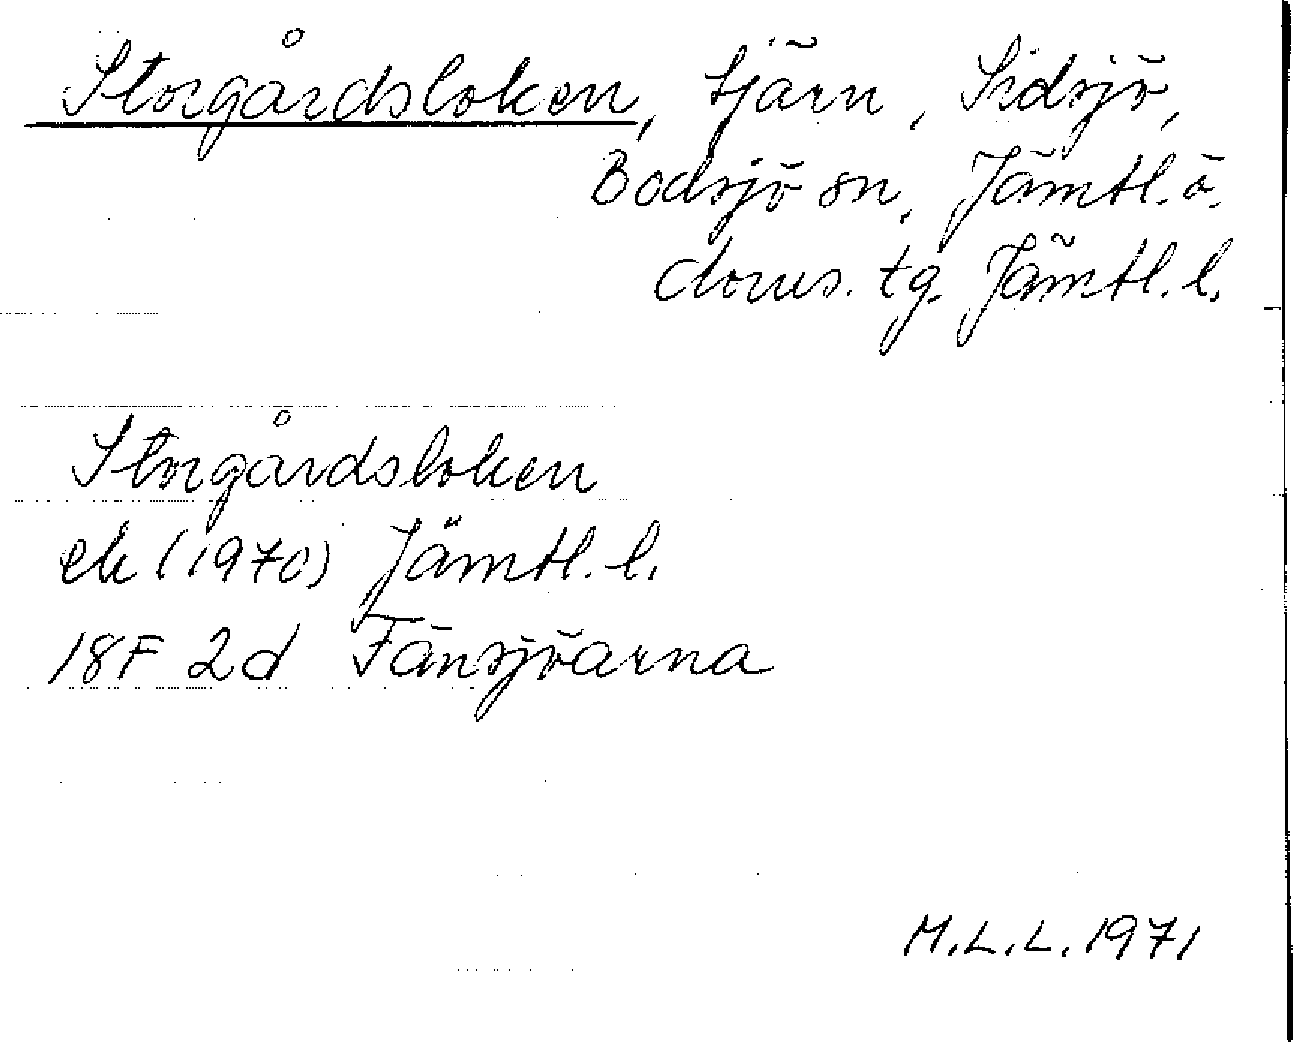 Storgårdsloken, tjärn, Sidsjö,
Bodsjö sn, Jämtl. ö.
doms. tg. Jämtl. l.
Storgårdsloken
ek (1970) Jämtl. l.
18F 2d Fänsjöarna
M.L.L. 1971